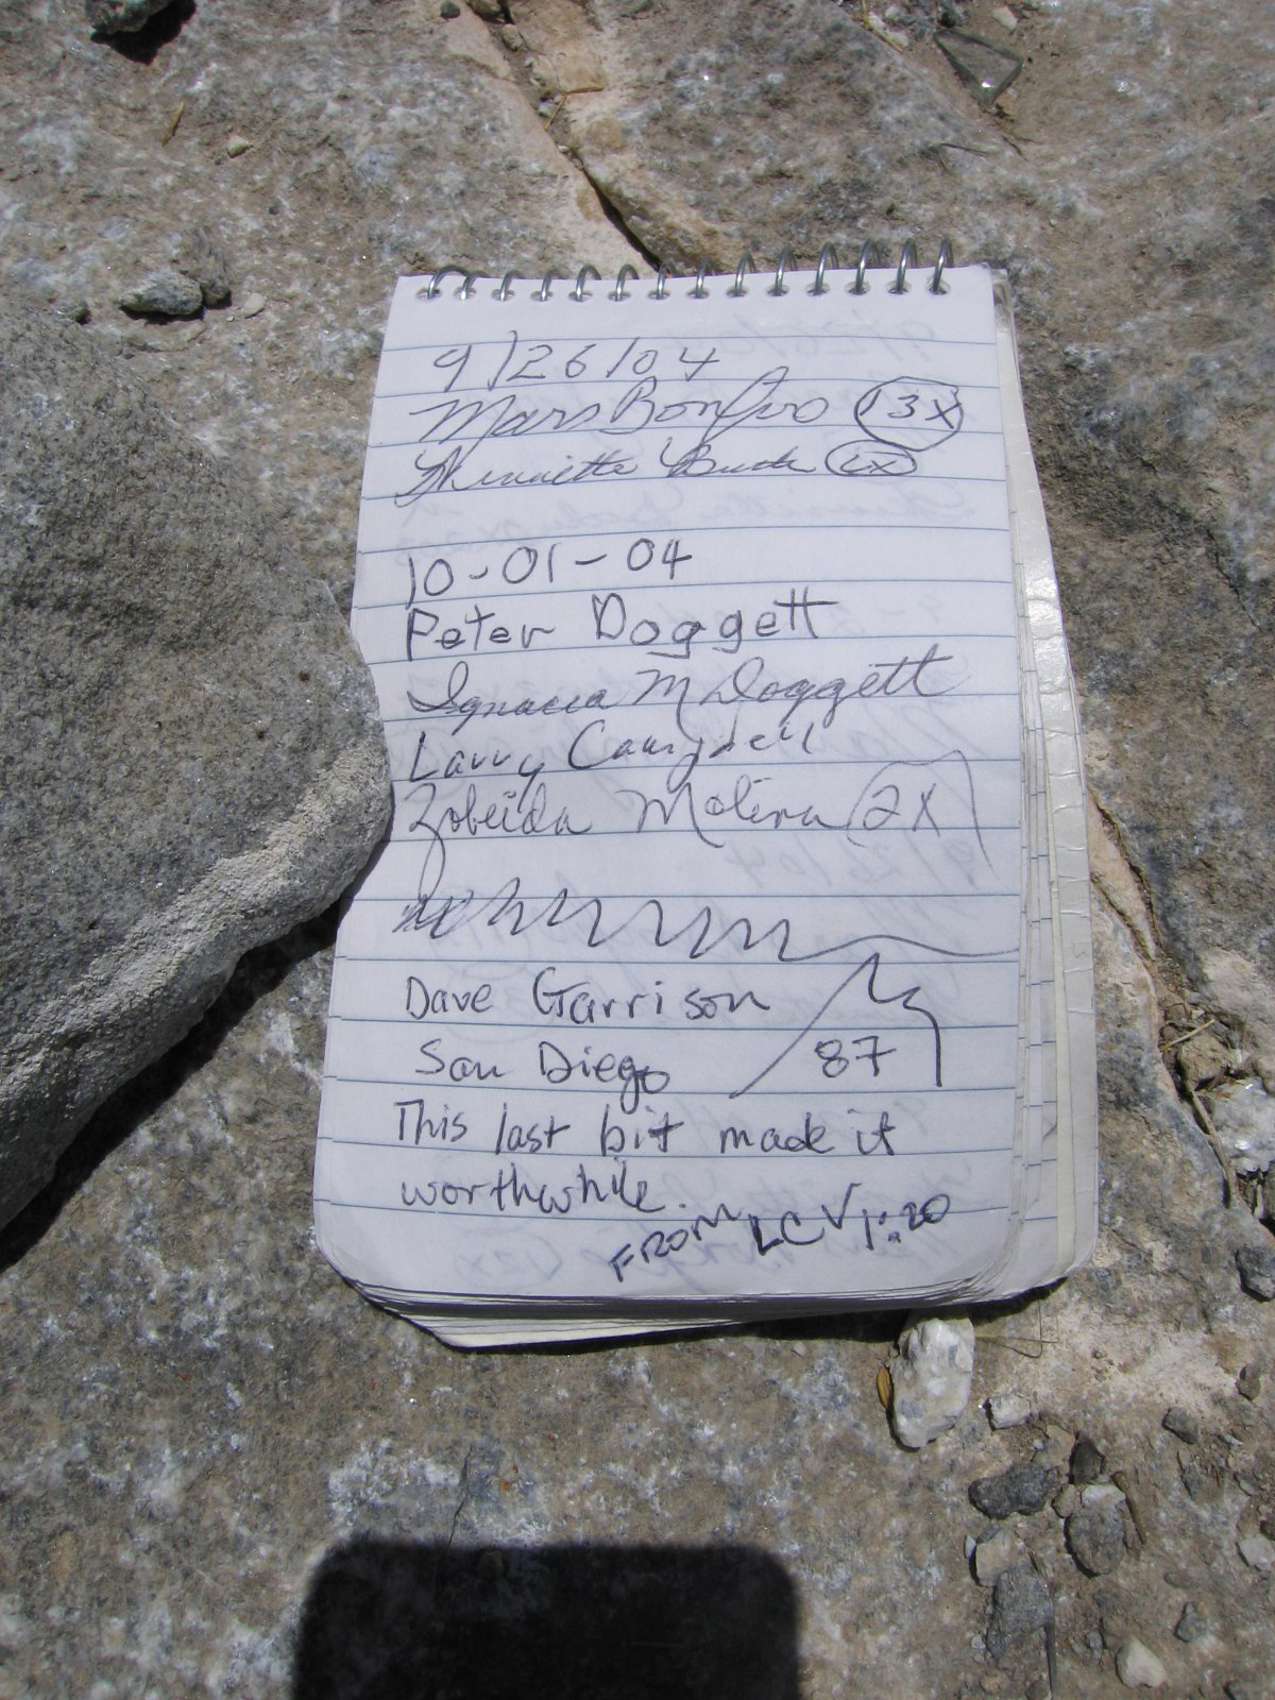 9/26/04
Mars Bonfire 13X
Henrietta
10-01-04
Peter Doggett
Ignacia M Doggett
Larry Campbell
Zobeida Molina 2X
Dave Garrison
San Diego 87
This last bit made it
worthwhile.
FROM LCV 1:20